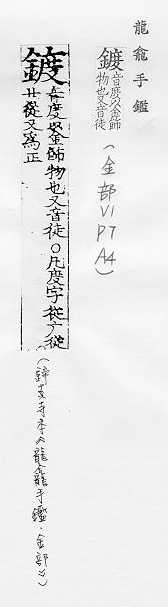 龍龕手鑑
鍍音度以金飾
物也又音徒
(金部VI
P7
A4)
鍍音度以金飾物也又音徒〇凡度字從广從
廿從又為正
(龍龕手鑑·金部)